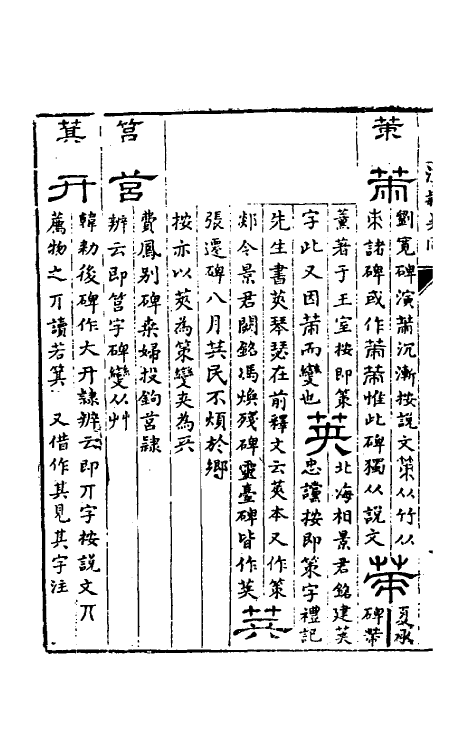 策 䇿 劉寬碑演䇿沉漸按說文策从竹从
朿諸碑或作䇿䇿惟此碑獨从說文 䇿 夏承碑䇿
薰著于王室按即策 北海相景君銘建荚
字此又因䇿而變也 荚 忠讜按即策字禮記
先生書荚琴瑟在前釋文云荚本又作策
郯令景君闕銘馮煥殘碑靈臺碑皆作荚 𦮼
張遷碑八月𦮼民不煩於鄉
按亦以荚為策變夾為𠀤
筥 莒 費鳳别碑桒婦投鉤莒隷
辨云即筥字碑變从艸
箕 丌 韓勑後碑作大丌隷辨云即丌字按說文丌
薦物之丌讀若箕 又借作其見其字注